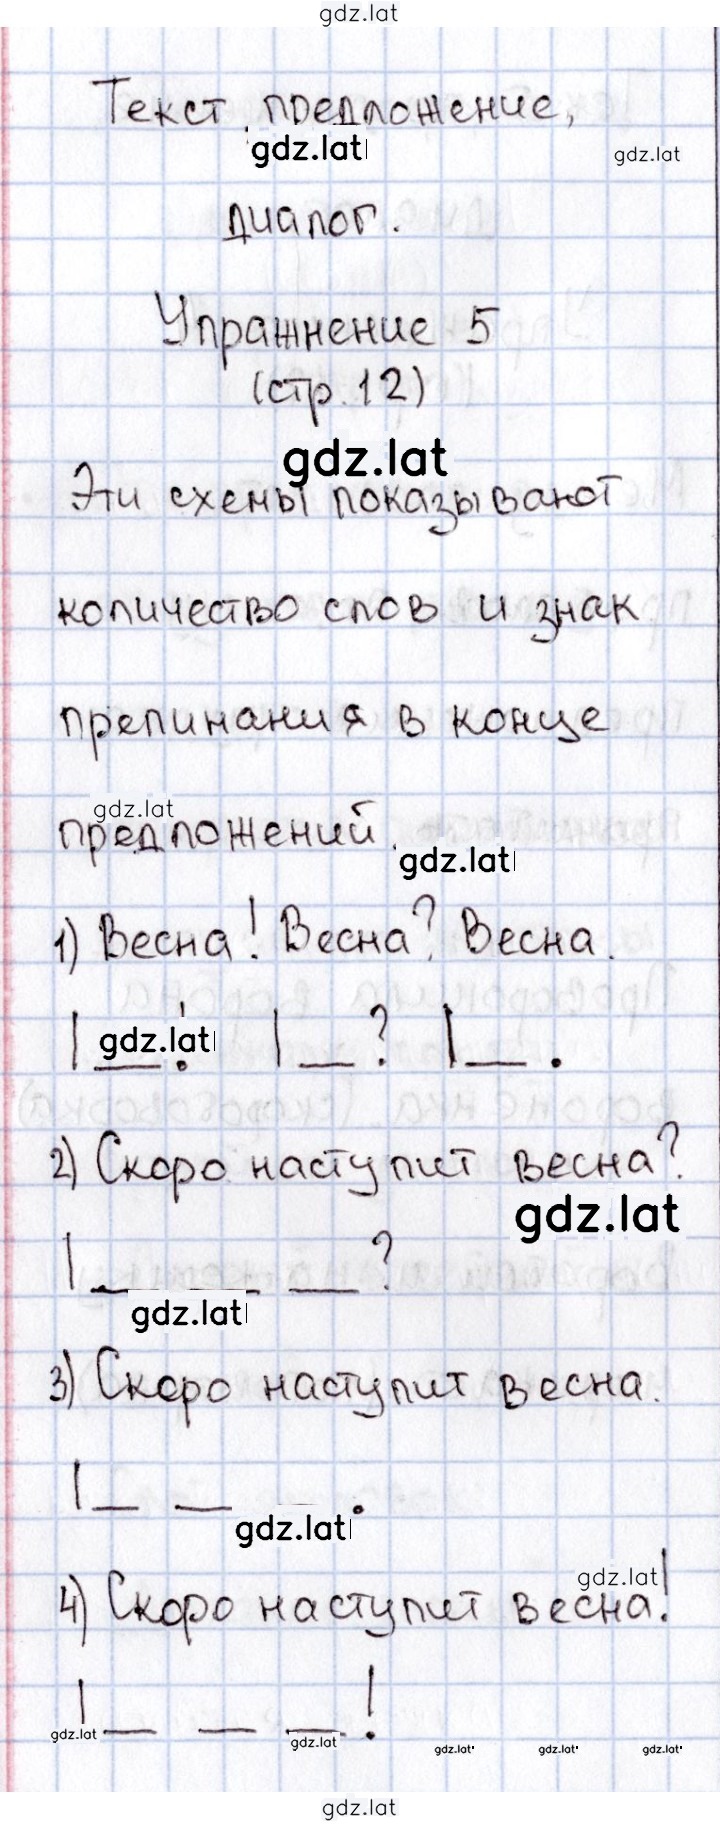 gdz.lat
Текст, предложение,
gdz.lat
gdz.lat
диалог.
Упражнение 5
(стр. 12)
gdz.lat
Эти схемы показывают
количество слов и знак
препинания в конце
gdz.lat
предложений.
gdz.lat
1) Весна! Весна? Весна.
|__! |__? |__.
gdz.lat
2) Скоро наступит весна?
gdz.lat
|__ __ __?
gdz.lat
3) Скоро наступит весна.
|__ __ __.
gdz.lat
gdz.lat
4) Скоро наступит весна!
|__ __ __!
gdz.lat
gdz.lat
gdz.lat gdz.lat gdz.lat
gdz.lat